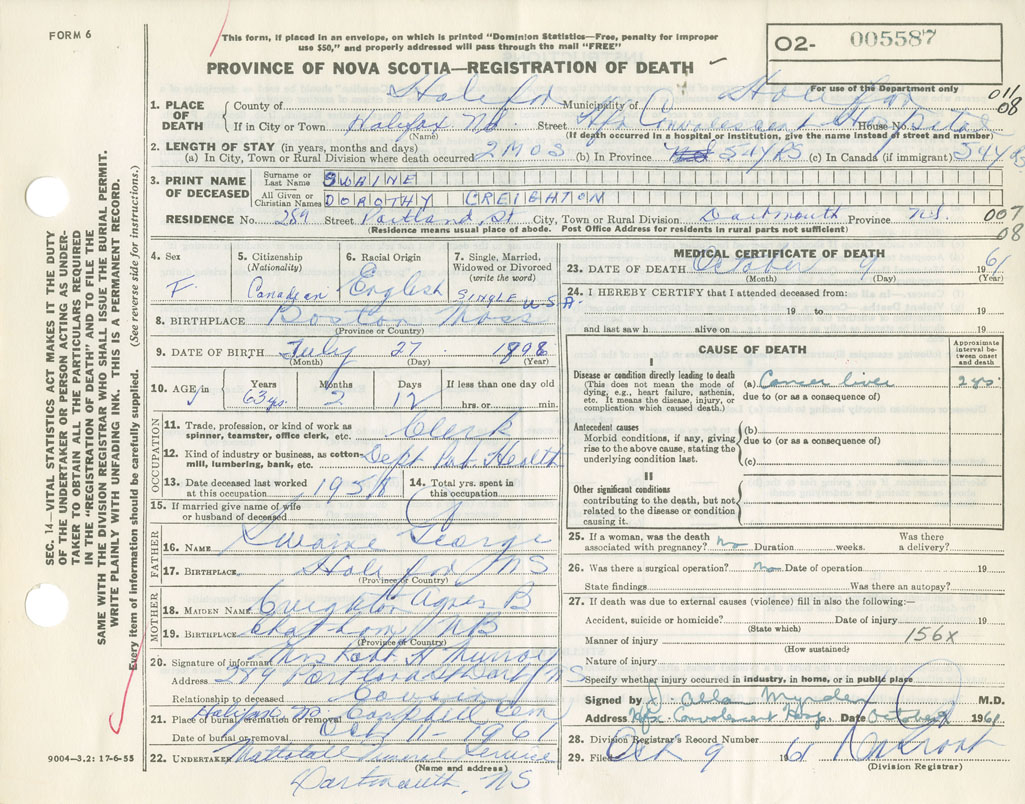 FORM 6
This form, if placed in an envelope, on which is printed "Dominion Statistics—Free, penalty for improper
use $50," and properly addressed will pass through the mail "FREE"
PROVINCE OF NOVA SCOTIA—REGISTRATION OF DEATH
O2- 005587
For use of the Department only
011
08
1. PLACE OF DEATH
County of Halifax Municipality of Halifax
If in City or Town Halifax NS. Street Hfx Convalescent Hospital House No.
(Name) (If death occurred in a hospital or institution, give the name instead of street and number)
2. LENGTH OF STAY (in years, months and days)
(a) In City, Town or Rural Division where death occurred 2 MOS (b) In Province 54 YRS (c) In Canada (if immigrant) 54 YRS
3. PRINT NAME OF DECEASED
Surname or Last Name SWAINE
All Given or Christian Names DOROTHY CREIGHTON
RESIDENCE No. 289 Street Portland St City, Town or Rural Division Dartmouth Province NS.
(Residence means usual place of abode. Post Office Address for residents in rural parts not sufficient)
007
08
4. Sex F.
5. Citizenship (Nationality) Canadian
6. Racial Origin English
7. Single, Married, Widowed or Divorced (write the word) SINGLE
8. BIRTHPLACE Boston Mass U.S.A.
(Province or Country)
9. DATE OF BIRTH July 27 1898
(Month) (Day) (Year)
10. AGE in Years 63 yrs. Months 2 Days 12 If less than one day old
hrs. or min.
OCCUPATION
11. Trade, profession, or kind of work as spinner, teamster, office clerk, etc. Clerk
12. Kind of industry or business, as cotton-mill, lumbering, bank, etc. Dept Pub Health
13. Date deceased last worked at this occupation 1958
14. Total yrs. spent in this occupation
15. If married give name of wife or husband of deceased
FATHER
16. NAME Swaine George
17. BIRTHPLACE Halifax NS
(Province or Country)
MOTHER
18. MAIDEN NAME Creighton Agnes B
19. BIRTHPLACE Chatham NB
(Province or Country)
20. Signature of informant Mrs Robt H Munroe
Address 289 Portland St Dart NS
Relationship to deceased Cousin
21. Place of burial, cremation or removal Halifax NS. Camphill Cem
Date of burial or removal Oct 11-1961
22. UNDERTAKER Mattatall Funeral Service
(Name and address)
Dartmouth, NS
9004—3.2: 17-6-55
MEDICAL CERTIFICATE OF DEATH
23. DATE OF DEATH October 9 1961
(Month) (Day) (Year)
24. I HEREBY CERTIFY that I attended deceased from:
19 to 19
and last saw h alive on 19
CAUSE OF DEATH
Approximate interval between onset and death
I
Disease or condition directly leading to death (a) Cancer liver 2 yrs.
(This does not mean the mode of dying, e.g., heart failure, asthenia, etc. It means the disease, injury, or complication which caused death.)
due to (or as a consequence of)
Antecedent causes
Morbid conditions, if any, giving rise to the above cause, stating the underlying condition last.
(b)
due to (or as a consequence of)
(c)
II
Other significant conditions
contributing to the death, but not related to the disease or condition causing it.
25. If a woman, was the death associated with pregnancy? No Duration weeks. Was there a delivery?
26. Was there a surgical operation? No Date of operation 19
State findings Was there an autopsy?
27. If death was due to external causes (violence) fill in also the following:—
Accident, suicide or homicide? Date of injury 19
(State which)
Manner of injury 156X
(How sustained)
Nature of injury
Specify whether injury occurred in industry, in home, or in public place
Signed by J. Allan Myrden M.D.
Address Hfx Convalescent Hosp. Date October 9 1961
28. Division Registrar's Record Number
29. Filed Oct 9 1961
(Division Registrar)
SEC. 14—VITAL STATISTICS ACT MAKES IT THE DUTY
OF THE UNDERTAKER OR PERSON ACTING AS UNDER-
TAKER TO OBTAIN ALL THE PARTICULARS REQUIRED
IN THE "REGISTRATION OF DEATH" AND TO FILE THE
SAME WITH THE DIVISION REGISTRAR WHO SHALL ISSUE THE BURIAL PERMIT.
WRITE PLAINLY WITH UNFADING INK. THIS IS A PERMANENT RECORD.
Every item of information should be carefully supplied. (See reverse side for instructions.)